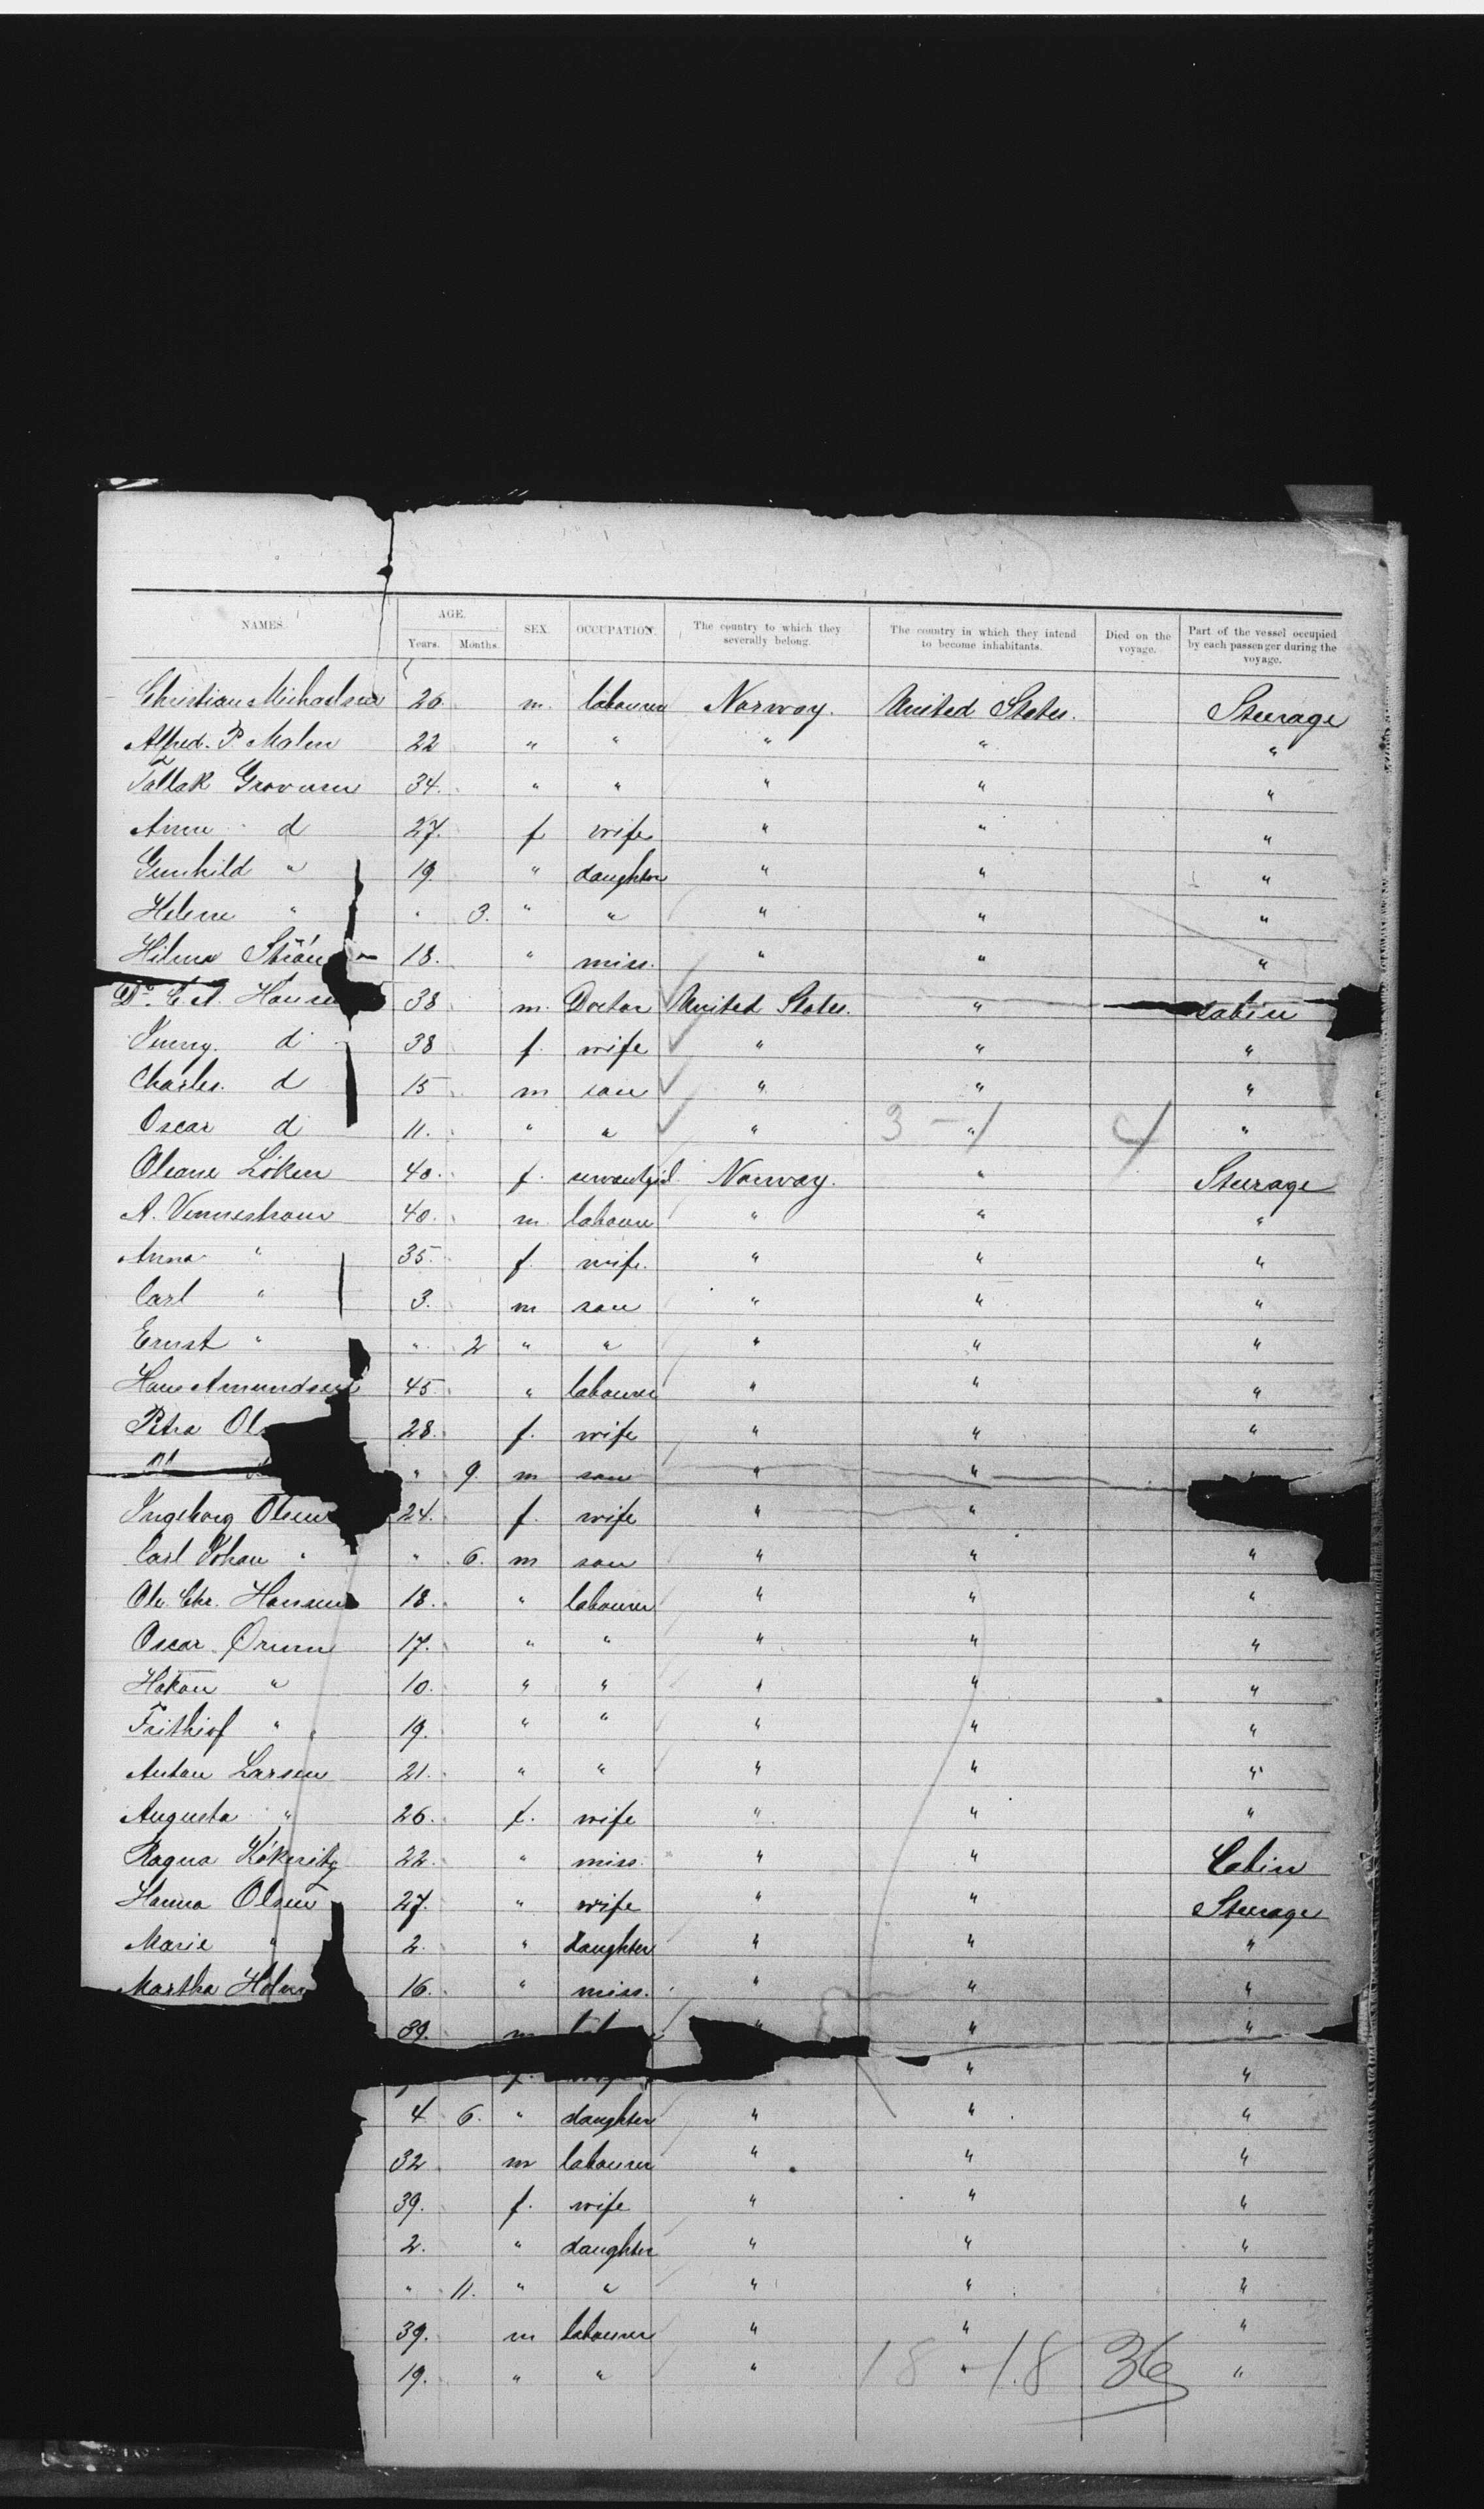 NAMES. AGE. SEX. OCCUPATION. The country to which they severally belong. The country in which they intend to become inhabitants. Died on the voyage. Part of the vessel occupied by each passenger during the voyage.
Years. Months.
Christian Michaelsen 26. m. labourer Norway. United States. Steerage
Alfred. P Malm 22 " " " " "
Tallak Grovum 34. " " " " "
Anne d 27. f wife " " "
Gunhild " 19. " daughter " " "
Helene " " 3. " " " " "
Hilma 18. " miss. " " "
Dr. C. A. Hansen 38 m. Doctor United States. " Cabin
Jenny. d 38 f. wife " " "
Charles. d 15 m son " " "
Oscar d 11. " " " " "
3 - 1 4
Oleane Löken 40. f. servantgirl Norway. " Steerage
A. 40. m labourer " " "
Anna " 35. f. wife. " " "
Carl " 3. m son " " "
Ernst " " 2 " " " " "
Hans Amundsen 45. " labourer " " "
Petra 28. f. wife " " "
" 9. m son " "
Ingeborg Olsen 24. f. wife " "
Carl Johan " " 6. m son " " "
Ole. Chr. Hansen 18. " labourer " " "
Oscar Örum 17. " " " " "
Hakon " 10. " " " " "
Frithiof " 19. " " " " "
Anton Larsen 21. " " " " "
Augusta " 26. f. wife " " "
Ragna Kökeritz 22. " miss. " " Cabin
Hanna Olsen 27. " wife " " Steerage
Marie " 2. " daughter " " "
Martha Holm 16. " miss. " " "
39. m " " "
f. " "
4 6. " daughter " " "
32 m labourer " " "
39. f. wife " " "
2. " daughter " " "
" 11. " " " " "
39. m labourer " " "
19. " " " " "
18 - 18 36